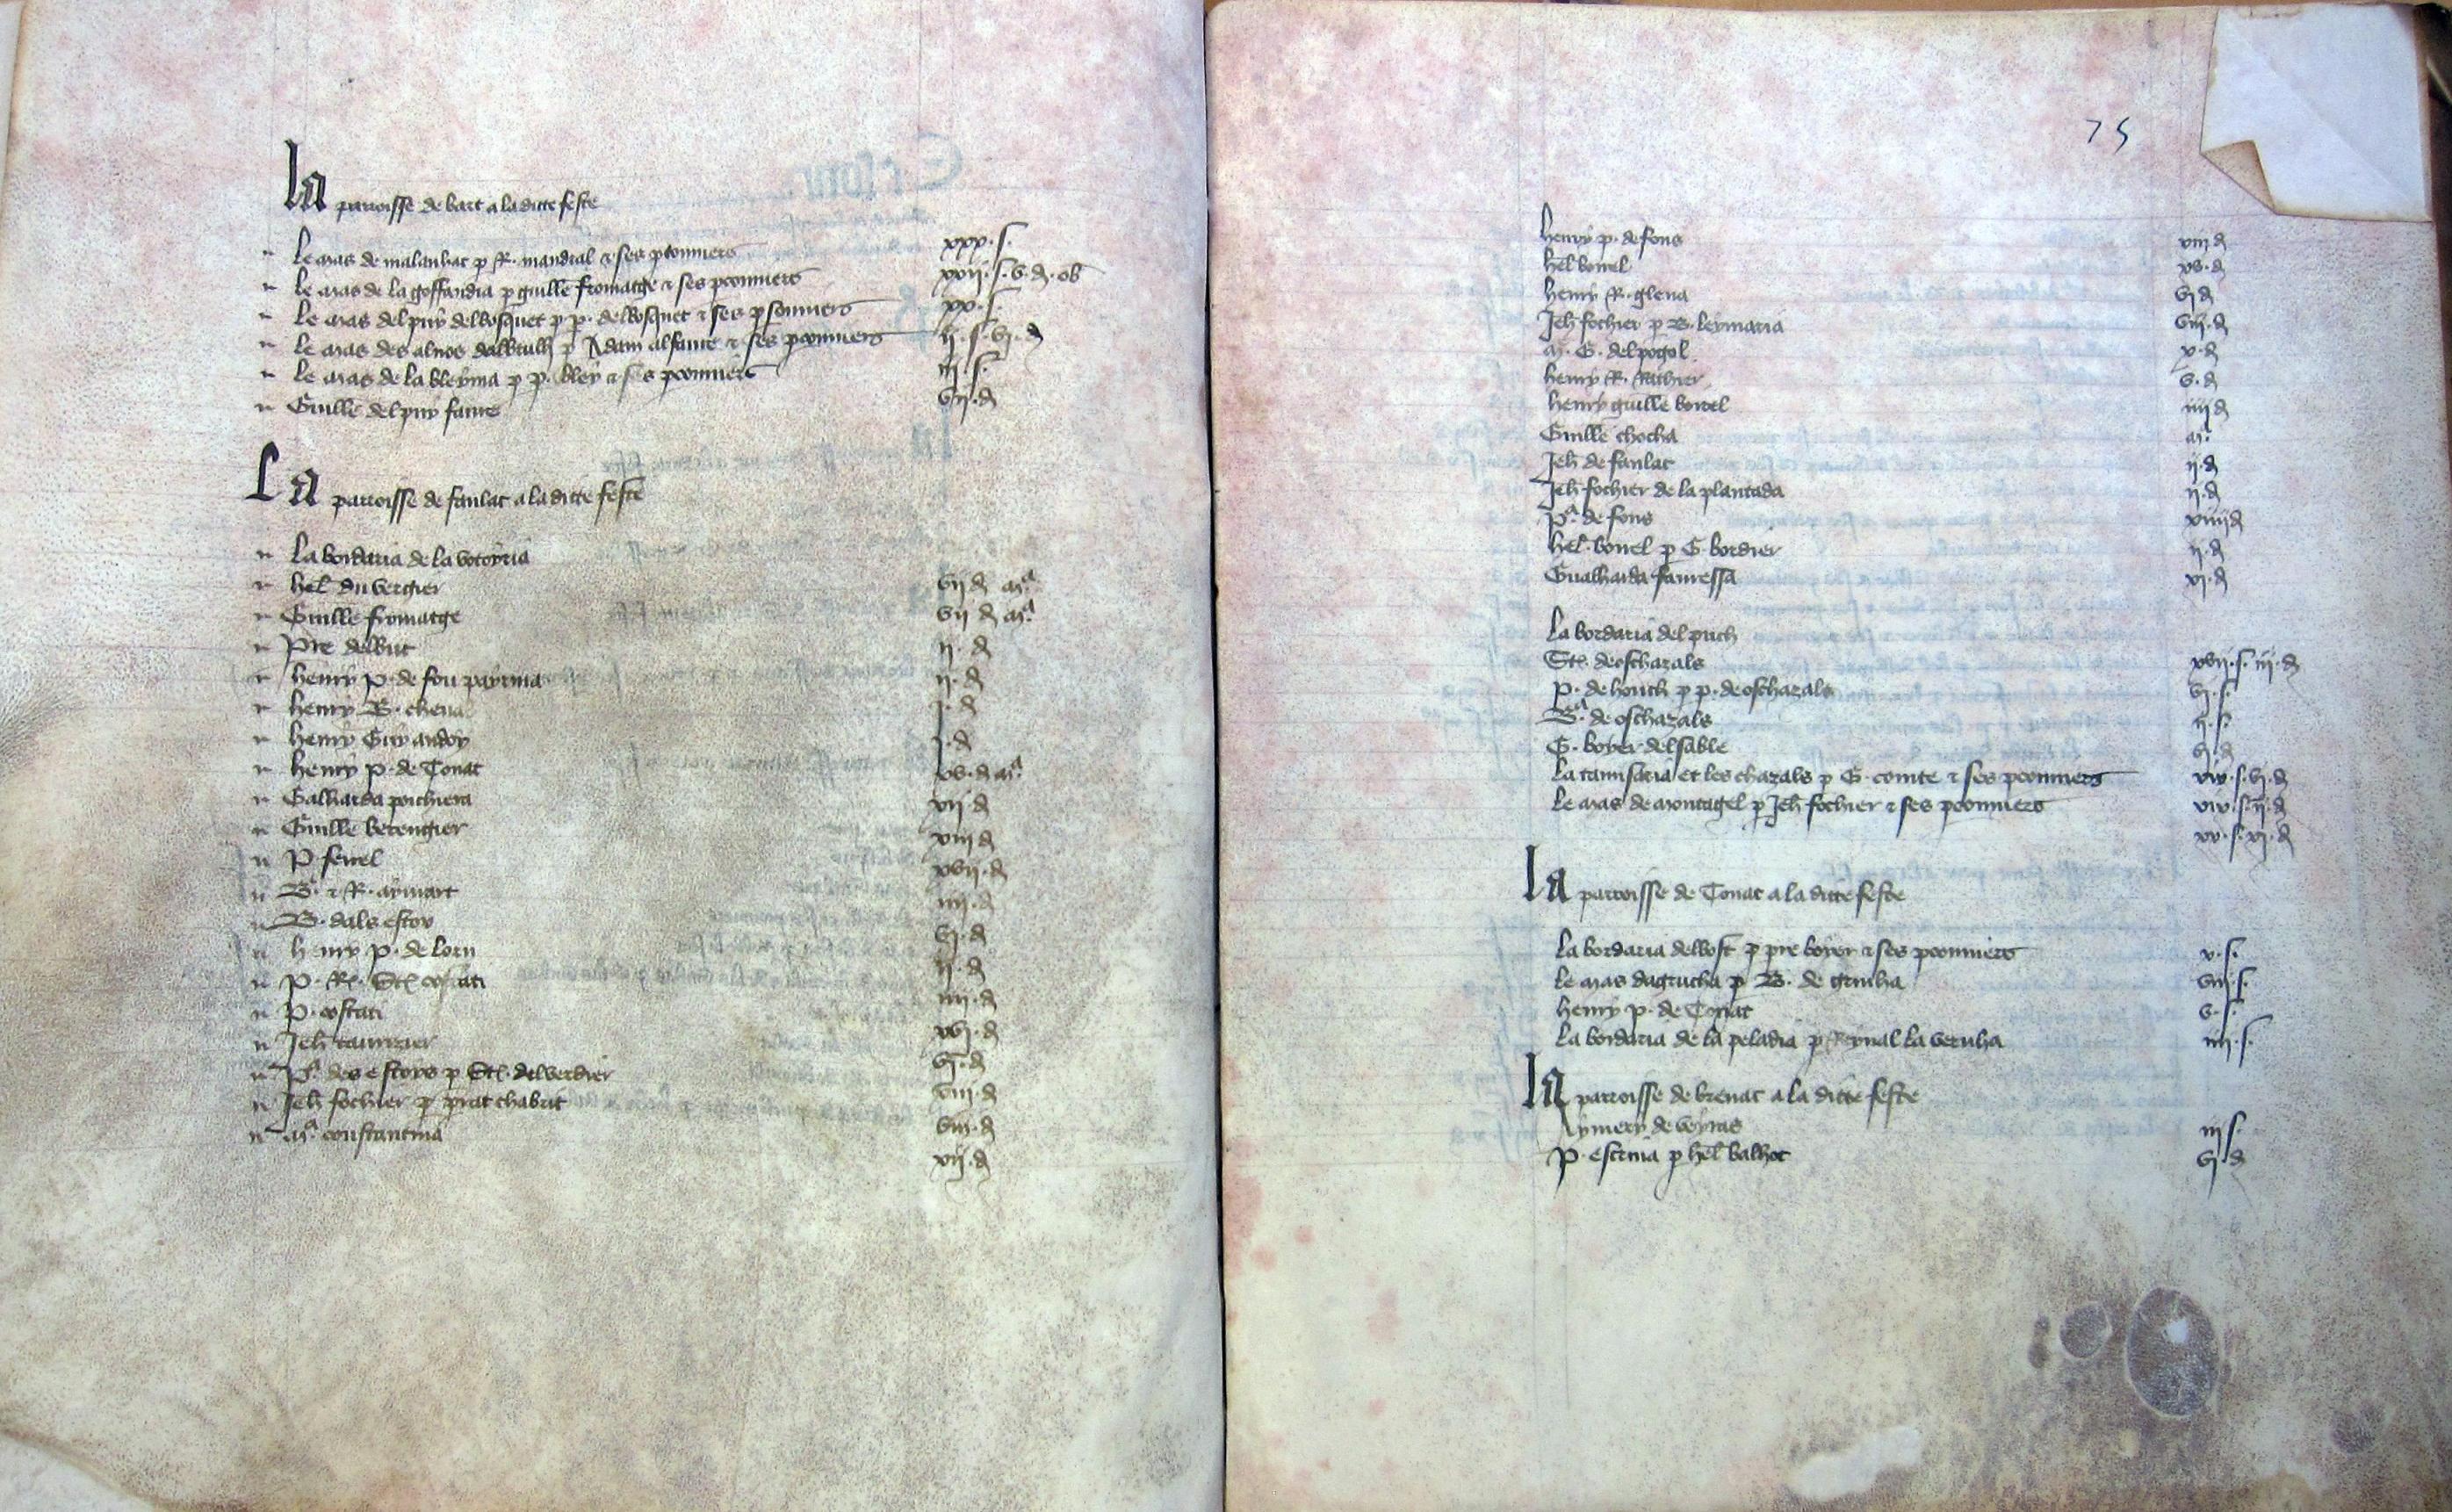 La parroisse de bart a la ditte feste
le mas de malanhac p R. mandral & ses pconniers xxx. s.
le mas de la goffandia p guille fromatge & ses pconniers xxii. s. v. d. ob
le mas del puy delbosquet p p. delbosquet & ses personniers xx. s.
le mas des alnos dalbrulh p Adam alfaure & ses pconniers ii. s. vi. d
le mas de la bleynia p p. bley & ses pconniers iii. s.
Guille del puy faure vii. d
La parroisse de fanlac a la ditte feste
la bordaria de la votoyria
hel du vergier vii d mª
Guille fromatge vii d mª
Pre delbuc ii. d
henry p. de fon payrina ii. d
henry B. chena i. d
henry Guy andoy i. d
henry p. de Tonac xv. d mª
Galharda porchiera vii d
Guille berengier viii d
P fenel xvii. d
B. & R. aymart iiii. d
B. dals estov vi. d
henry p. de lorn ii. d
P. R. St costati iiii. d
P. costati xvi. d
Jeh taurizier vi. d
Pª des estovs p St. delverdier viii. d
Jeh fochier p prat chabrit viii. d
mª constantina xii. d
75
henry p. de fons viii d
hel bonel xv. d
henry R. glena vi d
Jeh fochier p B. leymaria viii. d
m. G. del pogol x. d
henry R. Rathier v. d
henry guille bonel iiii d
Guille chocha mª
Jeh de fanlac ii. d
Jeh fochier de la plantada ii. d
Pª de fons xiiii d
hel. bonel p G bordier ii. d
Gualharda fauressa xi. d
la bordaria del puch
St. deoschazals xvii. s. iii. d
P. de honch p p. deoschazals vi. s.
Bª. de oschazals ii. s.
G. boyer delsable vi. d
la tanisaria et les chazals p G. comte & ses pconniers xiv. s. vi. d
le mas de montagel p Jeh fochier & ses pconniers xiv. s. ii. d
xv. s. xi. d
La parroisse de Tonac a la ditte feste
la bordaria delbost p pre boyer & ses pconniers v. s.
le mas dagrucha p B. de grinha viii. s.
henry p. de Tonac v. s.
la bordaria de la peladia p Reynal la vernha iiii. s.
La parroisse de brenac a la ditte feste
Aymery de veyras iii s.
P. estrnia p hel balhot vi. d